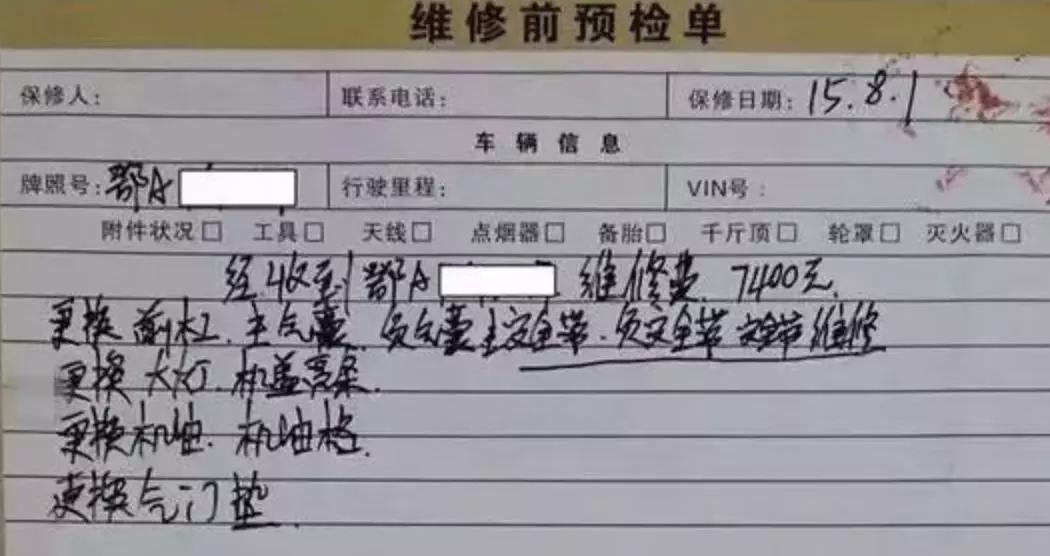 维修前预检单
保修人: 联系电话: 保修日期: 15.8.1
车辆信息
牌照号: 鄂A 行驶里程: VIN号:
附件状况□ 工具□ 天线□ 点烟器□ 备胎□ 千斤顶□ 轮罩□ 灭火器□
经收到鄂A 维修费 7400元.
更换前杠.主气囊.负气囊主安全带.负安全带安全带维修
更换大灯.机盖亮条.
更换机油.机油格.
更换气门垫.